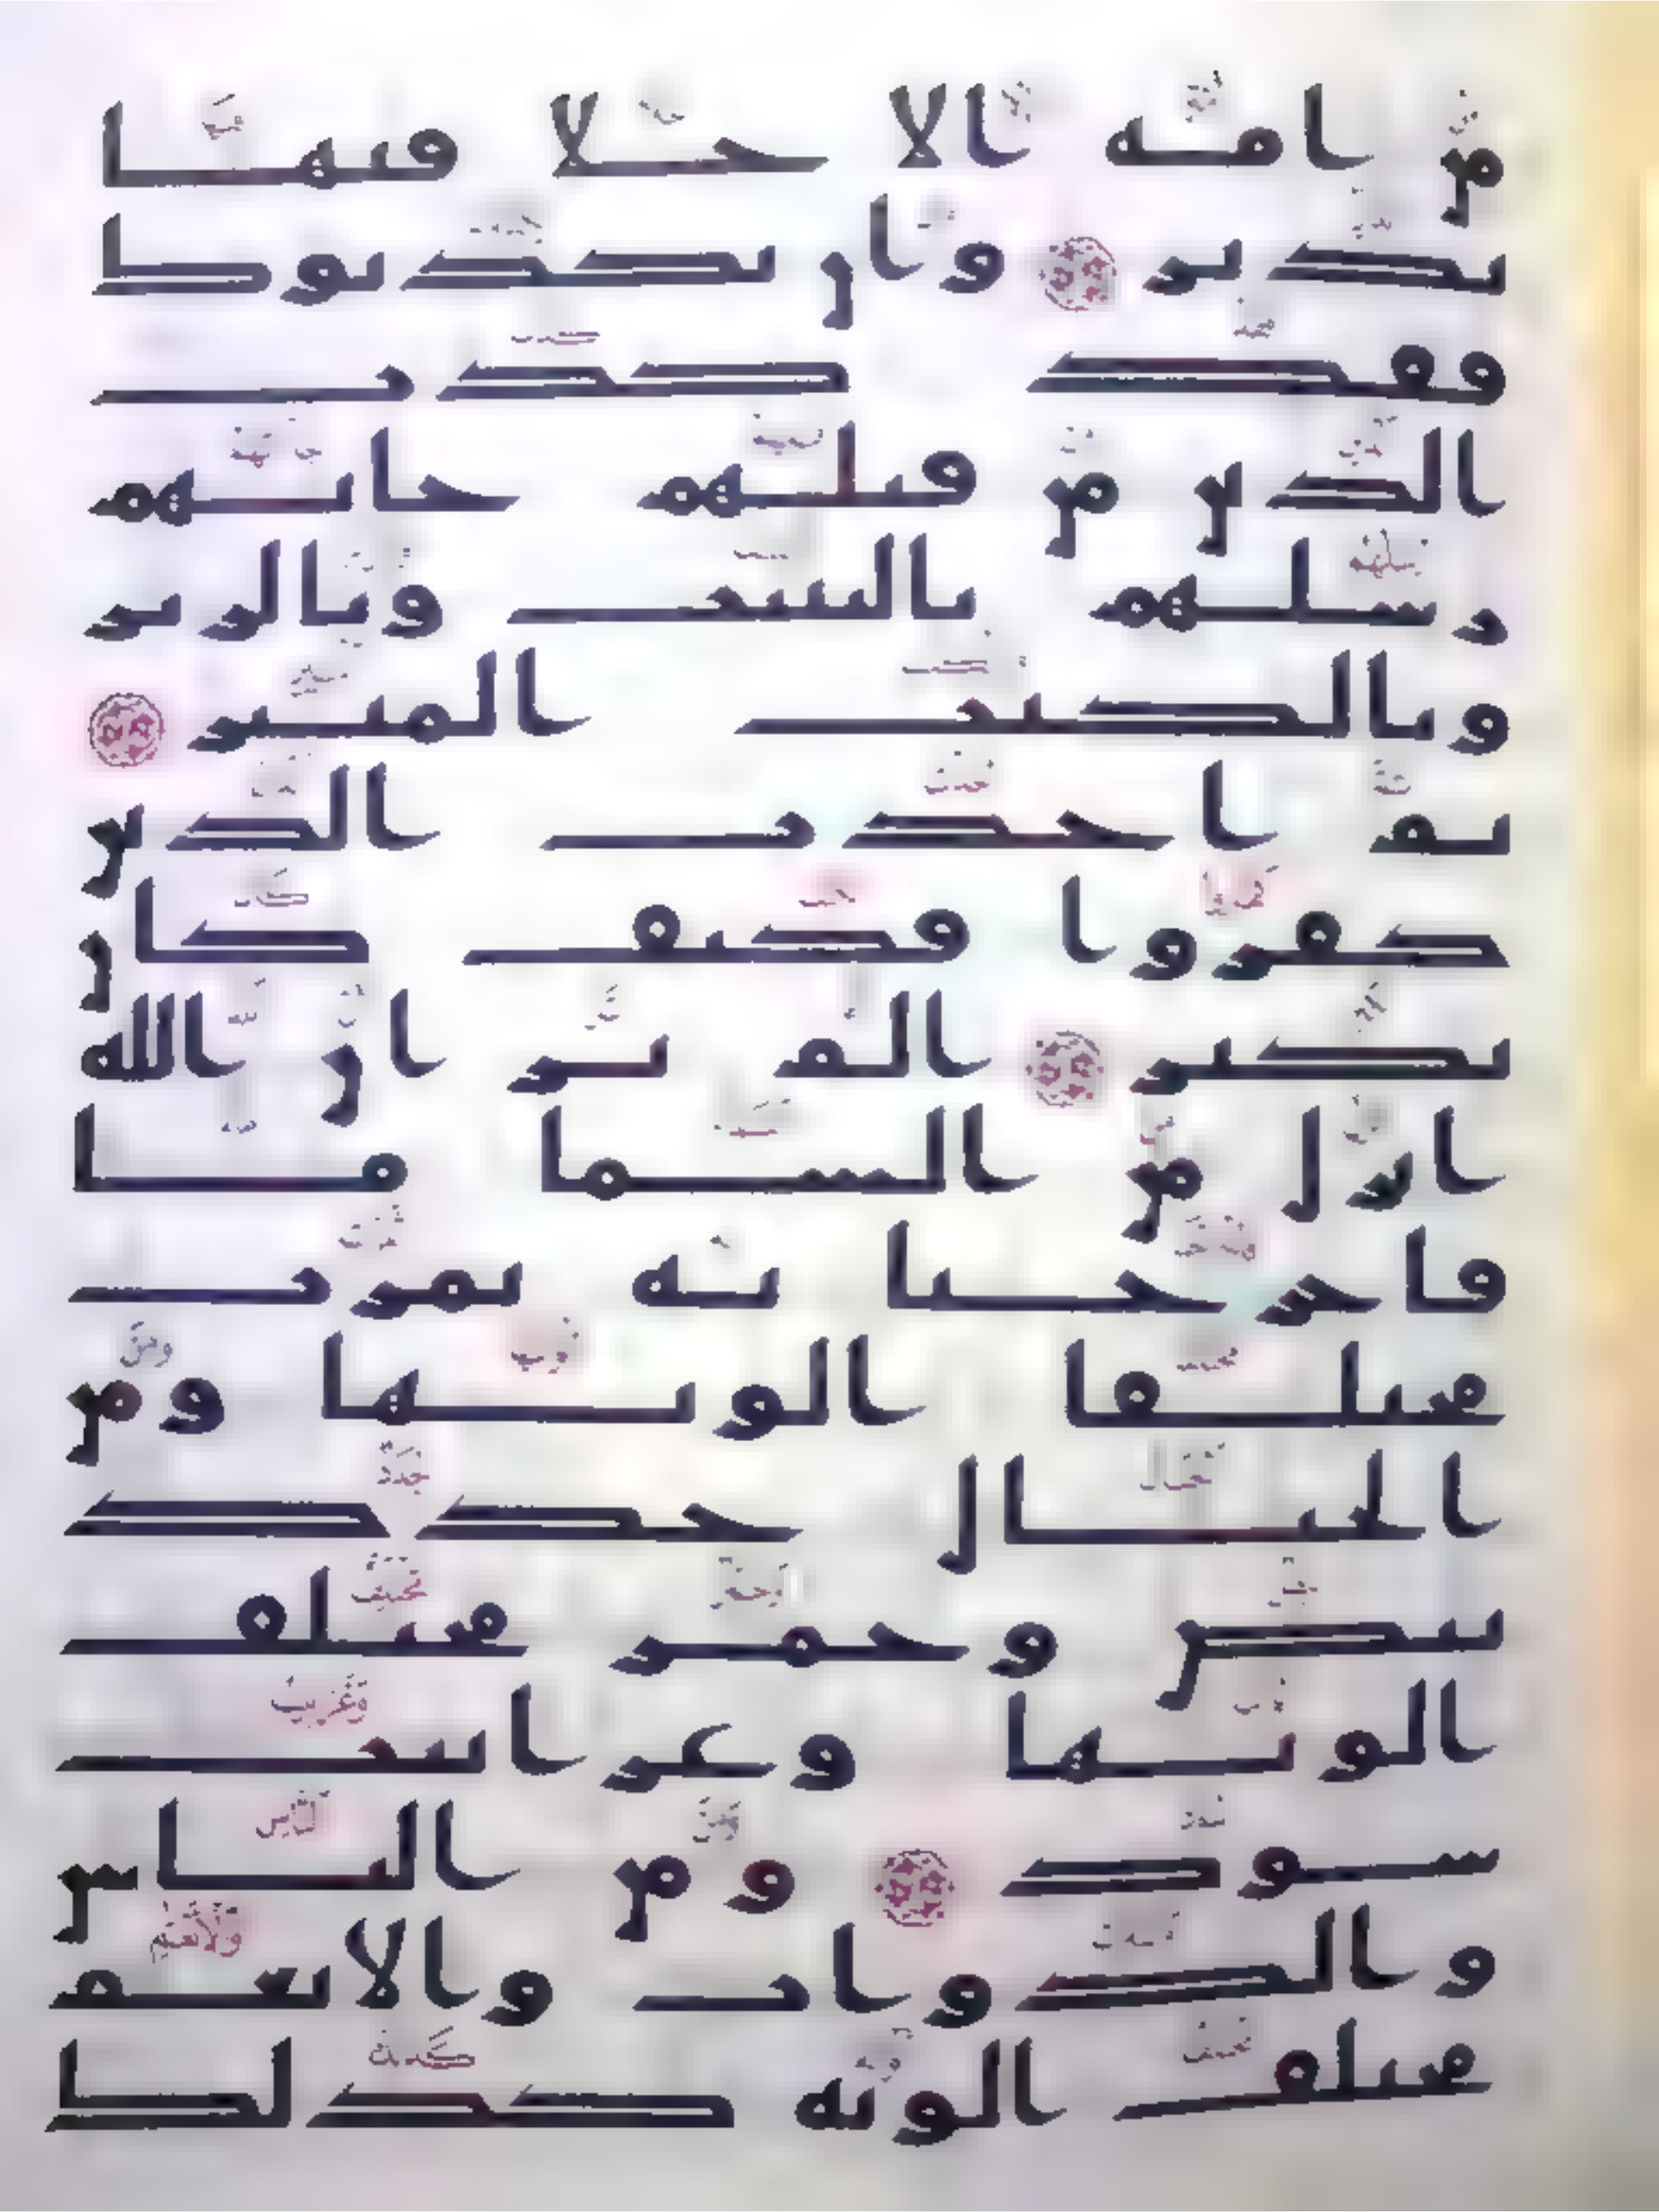 من امة الا خلا فيها
نذير وان يكذبوك
فقد كذب
الذين من قبلهم جاتهم
رسلهم بالبينت وبالزبر
وبالكتب المنير
ثم اخذت الذين
كفروا فكيف كان
نكير الم تر ان الله
انزل من السما ما
فاخرجنا به ثمرت
مختلفا الونها ومن
الجبال جدد
بيض وحمر مختلف
الونها وغرابيب
سود ومن الناس
والدواب والانعم
مختلف الونه كذلك